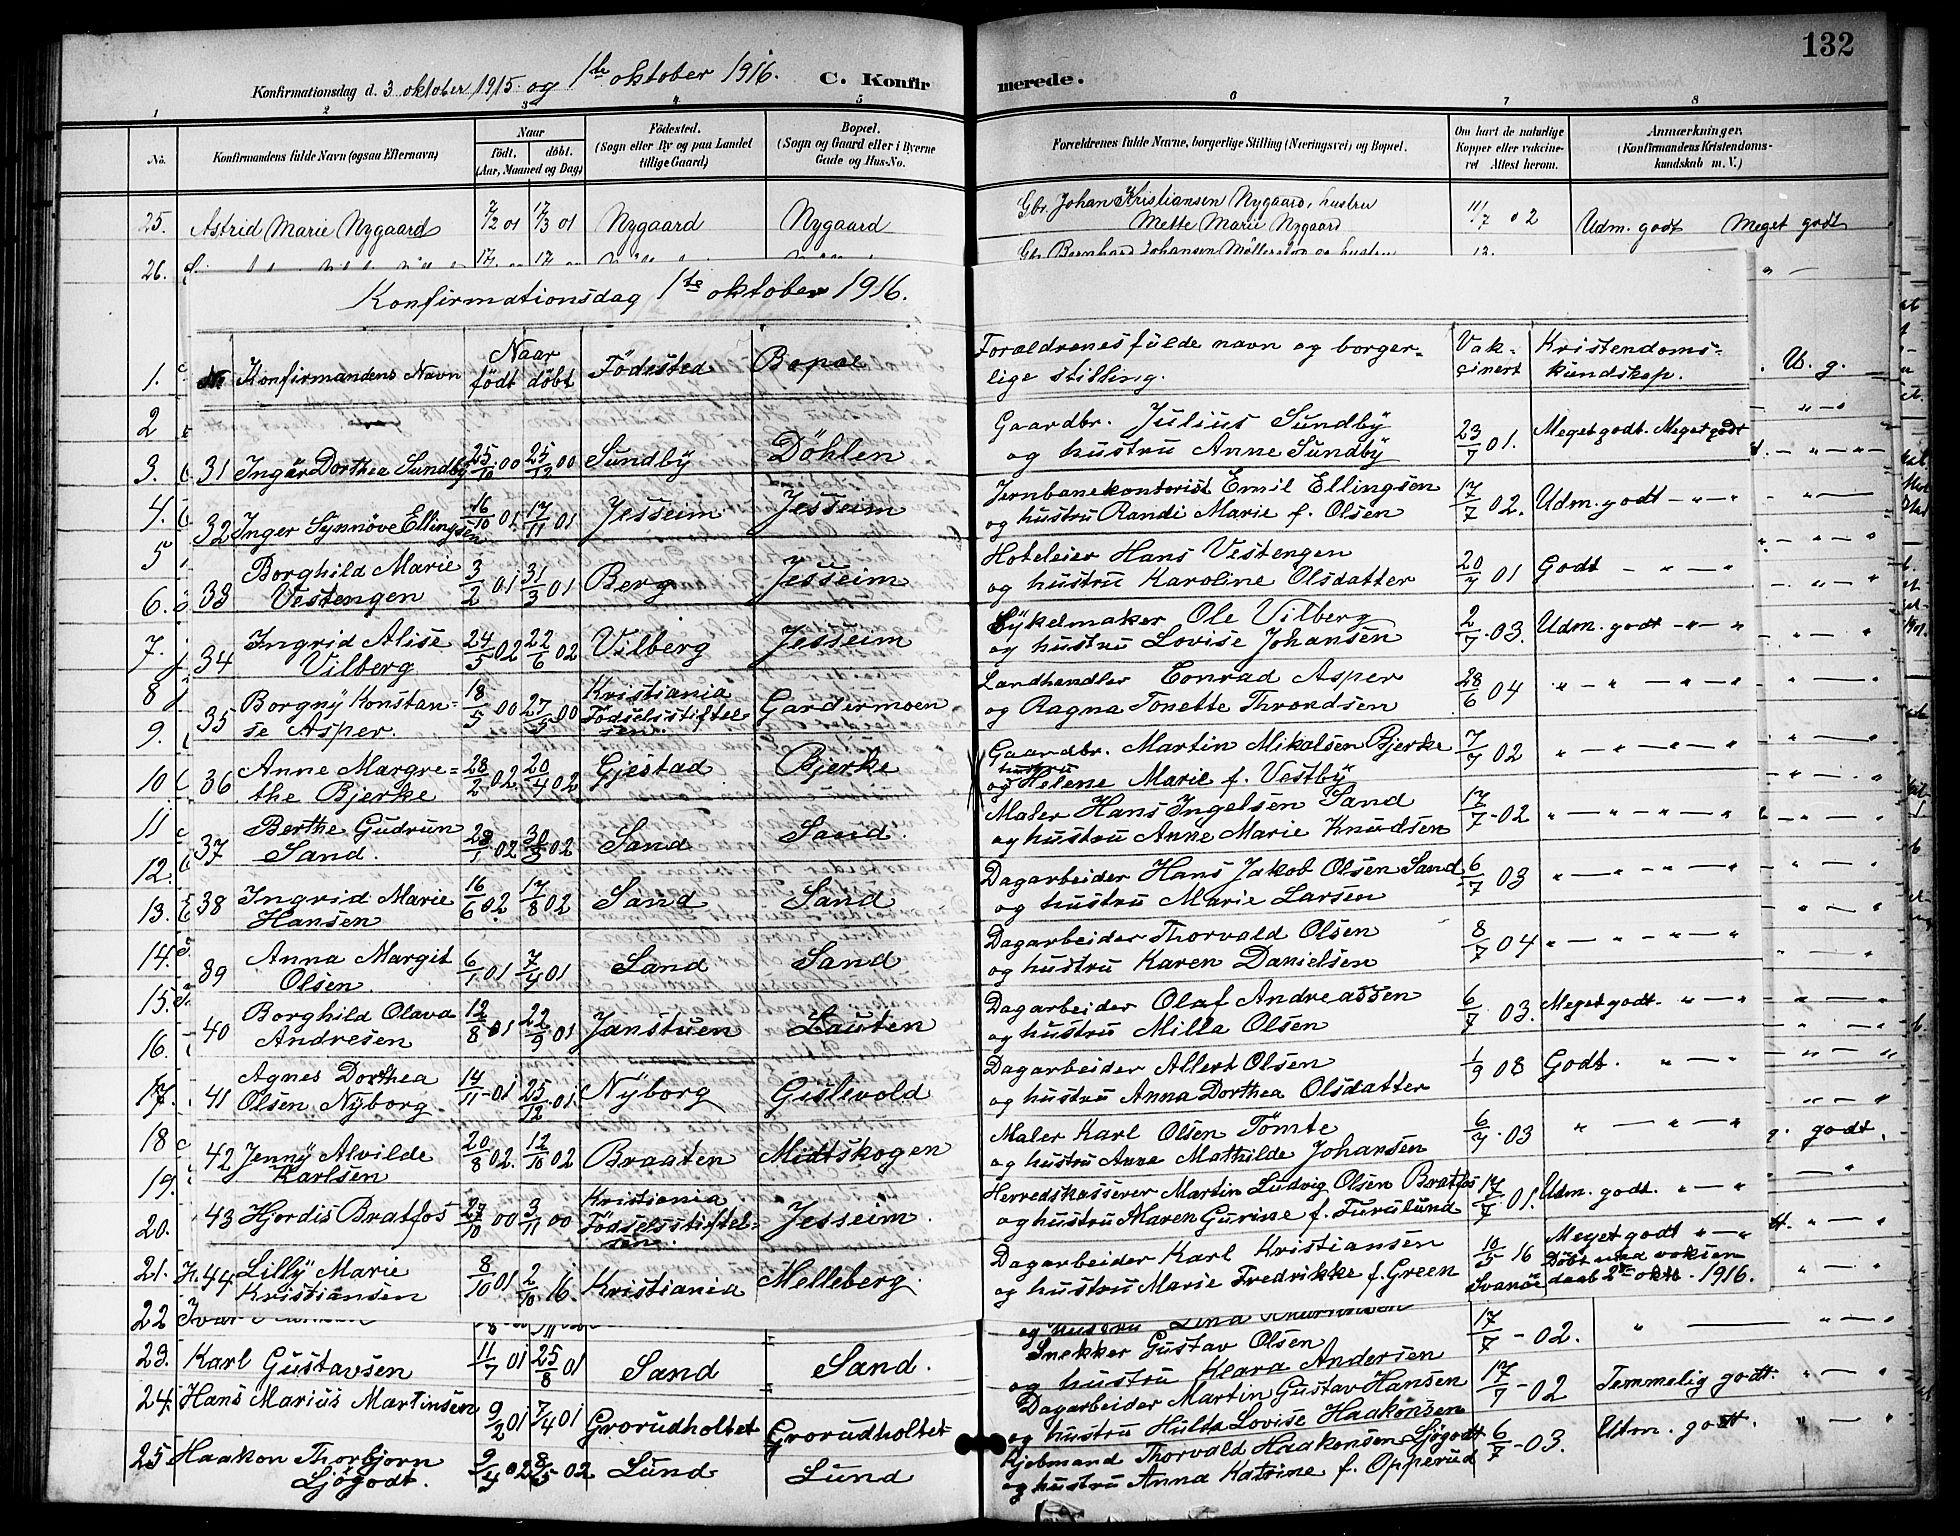 132
Konfirmationsdag d. 3 oktober 1915. og 1ste oktober 1916. C. Konfirmerede.
1 2 3 4 5 6 7 8
No. Konfirmandens fulde Navn (ogsaa Efternavn) Naar födt. döbt. (Aar, Maaned og Dag) Födested. (Sogn eller By og paa Landet tillige Gaard) Bopæl. (Sogn og Gaard eller i Byerne Gade og Hus-No. Forældrenes fulde Navne, borgerlige Stilling (Næringsvei) og Bopæl. Om havt de naturlige Kopper eller vakcineret Attest herom. Anmærkninger. (Konfirmandens Kristendomskundskab m. V.)
25. Astrid Marie Nygaard 7/2 01 17/3 01 Nygaard Nygaard Gbr. Johan Kristiansen Nygaard, hustru 11/7 02 Udm. godt Meget godt
Mette Marie Nygaard
26. Gbr. Bernhard Johansen Möllerstad og hustru
Konfirmationsdag 1ste oktober 1916.
No Konfirmandens Navn Naar födt döbt Födested Bopæl Forældrenes fulde navn og borger= Vak= Kristendoms=
lige stilling. cinert kundskap.
31 Ingár Dorthea Sundby 25/10 00 25/12 00 Sundby Döhlen Gaardbr. Julius Sundby 23/7 01. Meget godt. Meget godt
og hustru Anne Sundby
32 Inger Synnöve Ellingsen 16/10 01 17/11 01 Jesseim Jesseim Jernbanekontorist Emil Ellingsen 17/7 02. Udm. godt — " — "
og hustru Randi Marie f. Olsen
33 Borghild Marie Vestengen 3/2 01 31/3 01 Berg Jesseim Hoteleier Hans Vestengen 20/7 01 Godt — " — "
og hustru Karoline Olsdatter
34 Ingrid Alise Vilberg 24/5 02 22/6 02 Vilberg Jesseim Sykelmaker Ole Vilberg 2/7 03. Udm. godt — " — "
og hustru Lovise Johansen
35 Borgny Konstan=se Asper. 18/5 00 27/5 00 Kristiania Födselsstiftel=sen. Gardermoen Landhandler Conrad Asper 28/6 04 " — " — " — " — "
og Ragna Tonette Throndsen
36 Anne Margre=the Bjerke 28/2 02. 20/4 02 Gjestad Bjerke Gaardbr. Martin Mikalsen Bjerke 7/7 02 " — " — " — " — "
og hustru Helene Marie f. Vestby
37 Berthe Gudrun Sand. 28/1 02 30/3 02 Sand Sand. Maler Hans Ingelsen Sand 17/7 02 " — " — " — " — "
og hustru Anne Marie Knudsen
38 Ingrid Marie Hansen 16/6 02. 17/8 02 Sand Sand Dagarbeider Hans Jakob Olsen Sand 6/7 03 " — " — " — " — "
og hustru Marie Larsen
39 Anna Margit Olsen. 6/1 01 7/4 01 Sand Sand Dagarbeider Thorvald Olsen 8/7 04 " — " — " — " — "
og hustru Karen Danielsen
40 Borghild Olava Andresen 12/8 01 22/9 01 Janstuen Lauten Dagarbeider Olaf Andreassen 6/7 03. Meget godt. " — "
og hustru Milla Olsen
41 Agnes Dorthea Olsen Nyborg. 14/11 01 25/12 01. Nyborg Gislevold Dagarbeider Allert Olsen 1/9 08 Godt. " — "
og hustru Anna Dorthea Olsdatter
42 Jenny Alvilde Karlsen 20/8 02. 12/10 02 Braaten Midtskogen Maler Karl Olsen Tömte 6/7 03 " — " — "
og hustru Anne Mathilde Johansen
43 Hjordis Bratfos 27/10 00 3/11 00 Kristiania Födselsstiftel=sen. Jesseim. Herredskasserer Martin Ludvig Olsen Bratfos 17/7 01. Udm. godt. " — "
og hustru Maren Gurine f. Furulund
44 Lilly Marie Kristiansen 8/10 01 2/10 16. Kristiania Melleberg. Dagarbeider Karl Kristiansen 10/5 16 Meget godt " — "
og hustru Marie Fredrikke f. Green Svanöe Döbt med voksen daab 2den okt. 1916.
1. U. g.
2
3.
4.
5
6.
7.
8
9.
10
11
12.
13.
14.
15.
16.
17.
18 godt.
19.
20.
21.
22 og hustru Lina
23. Karl Gustavsen 11/7 01 25/8 01 Sand Sand. Snekker Gustav Olsen 17/7 — 02. " — " — "
og hustru Klara Andersen
24. Hans Marius Martinsen 9/2 01 7/4 01 Grorudholtet Grorudholtet Dagarbeider Martin Gustav Hansen 17/7 — 02 Temmelig godt. " — "
og hustru Hulda Lovise Haakonsen
25 Haakon Thorbjorn Sjögodt. 9/4 02 8/5 02 Lund Lund Kjobmand Thorvald Haakonsen Sjögodt 6/7 — 03. Udm. godt. " — "
og hustru Anna Katrine f. Opperud